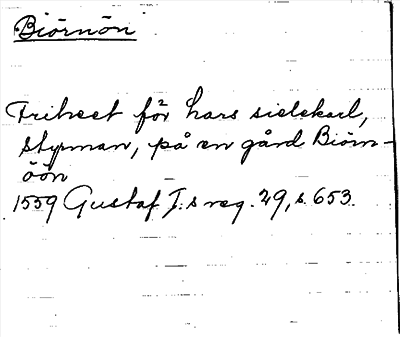 Biörnön
Friheet för hars sielekarl,
styrman, på en gård Biörn-
öön
1559 Gustaf I:s reg. 29, s. 653.